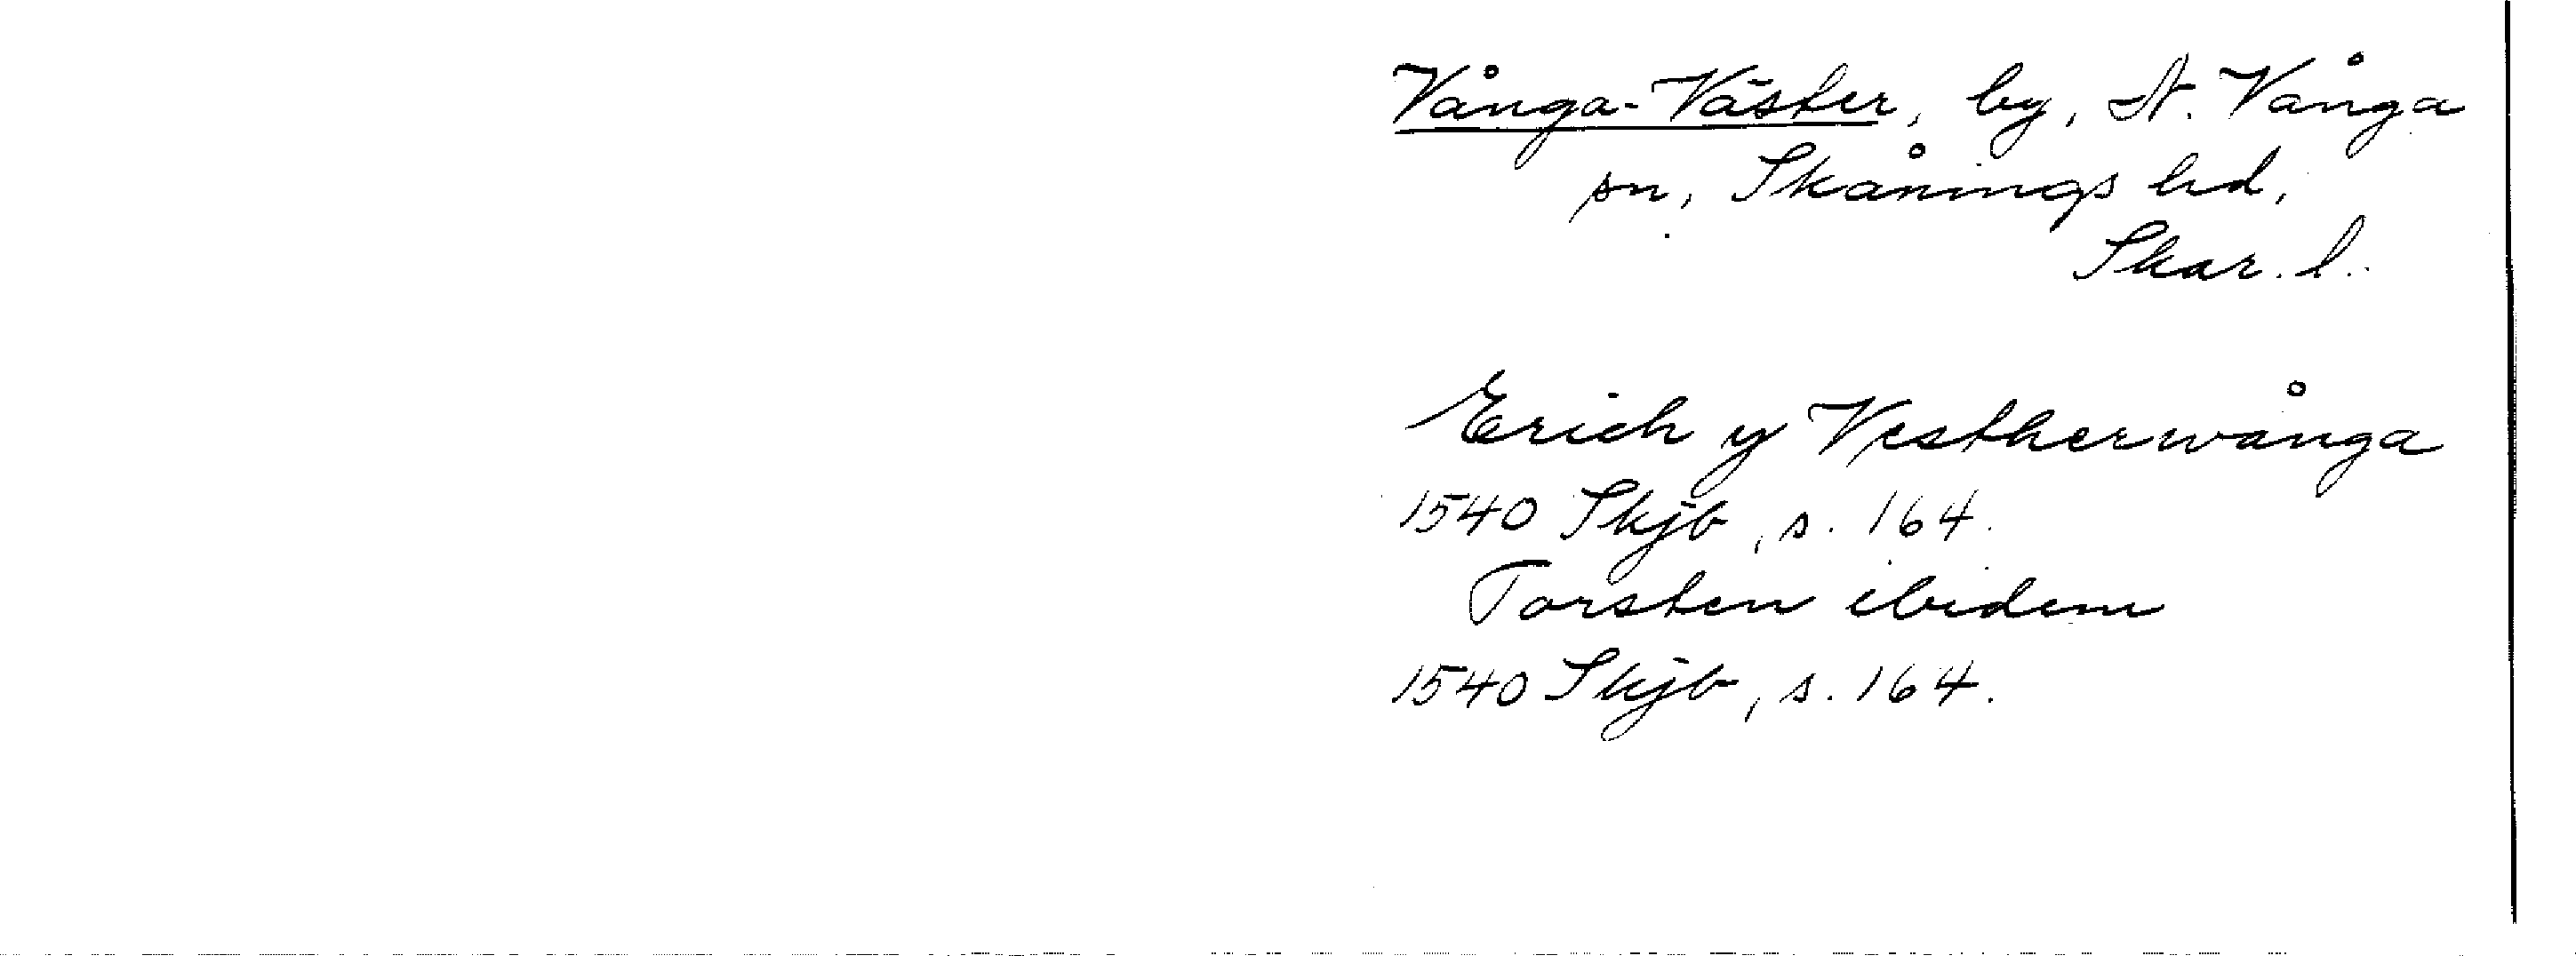 Vånga-Väster, by, N. Vånga
sn, Skånings hd,
Skar. l.
Erich y Vestherwånga
1540 Skjb, s. 164.
Torsten ibidem
1540 Skjb, s. 164.